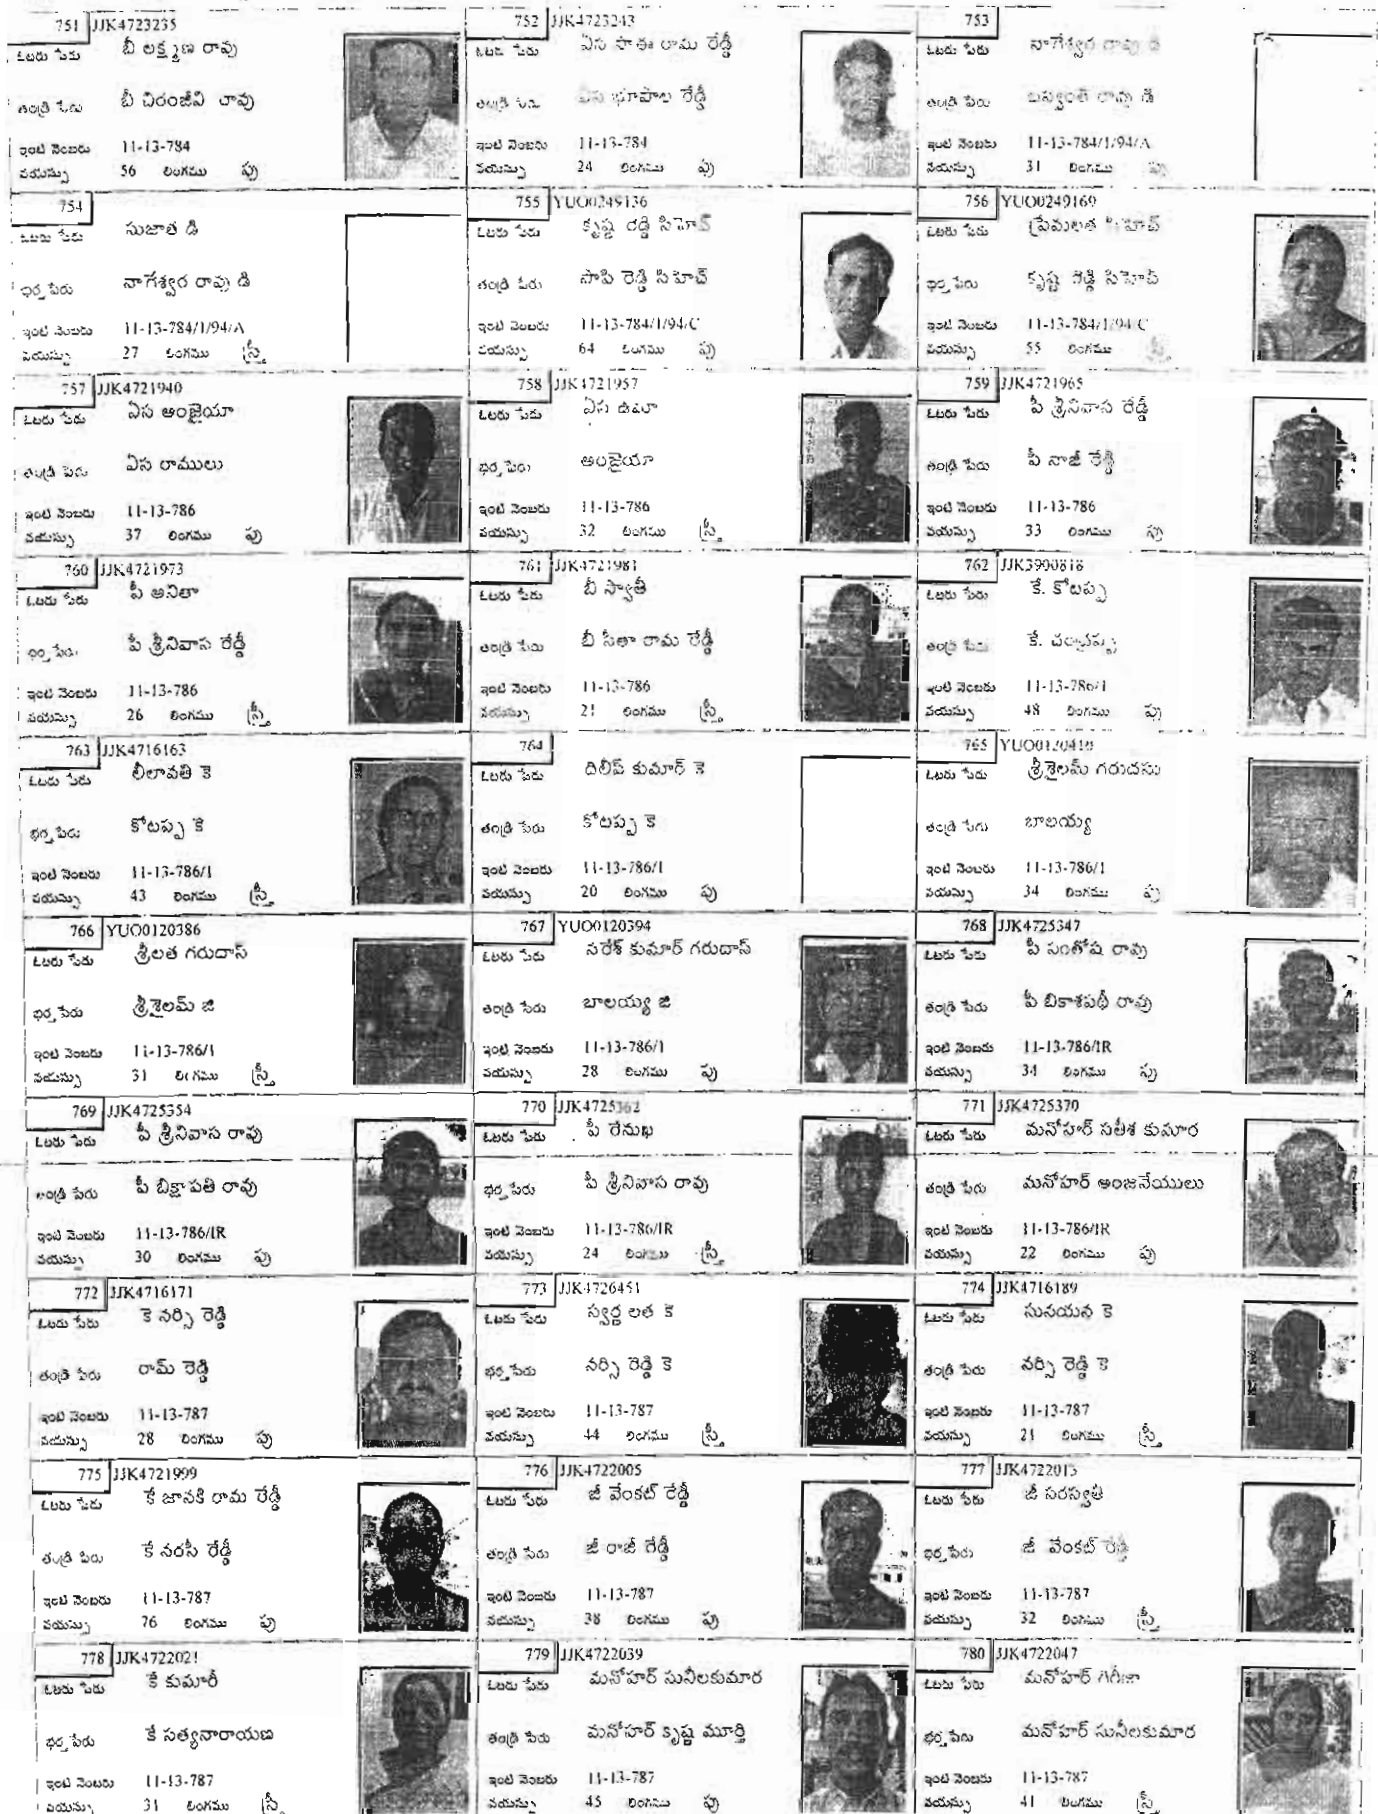 751 JJK4723235
ఓటరు పేరు బీ లక్ష్మణ రావు
తండ్రి పేరు బీ చిరంజీవి రావు
ఇంటి నెంబరు 11-13-784
వయస్సు 56 లింగము పు
752 JJK4723243
ఓటరు పేరు ఏస సాఈ రాము రేడ్డీ
తండ్రి పేరు ఏస భూపాల రేడ్డీ
ఇంటి నెంబరు 11-13-784
వయస్సు 24 లింగము పు
753
ఓటరు పేరు నాగేశ్వర రావు డి
తండ్రి పేరు బస్వంత్ రావు డి
ఇంటి నెంబరు 11-13-784/1/94/A
వయస్సు 31 లింగము పు
754
ఓటరు పేరు సుజాత డి
భర్త పేరు నాగేశ్వర రావు డి
ఇంటి నెంబరు 11-13-784/1/94/A
వయస్సు 27 లింగము స్త్రీ
755 YUO0249136
ఓటరు పేరు కృష్ణ రెడ్డి సిహెచ్
తండ్రి పేరు సాపి రెడ్డి సిహెచ్
ఇంటి నెంబరు 11-13-784/1/94/C
వయస్సు 64 లింగము పు
756 YUO0249169
ఓటరు పేరు ప్రేమలత సిహెచ్
భర్త పేరు కృష్ణ రెడ్డి సిహెచ్
ఇంటి నెంబరు 11-13-784/1/94/C
వయస్సు 55 లింగము స్త్రీ
757 JJK4721940
ఓటరు పేరు ఏస అంజైయా
తండ్రి పేరు ఏస రాములు
ఇంటి నెంబరు 11-13-786
వయస్సు 37 లింగము పు
758 JJK4721957
ఓటరు పేరు ఏస ఉమా
భర్త పేరు అంజైయా
ఇంటి నెంబరు 11-13-786
వయస్సు 32 లింగము స్త్రీ
759 JJK4721965
ఓటరు పేరు పీ శ్రీనివాస రేడ్డీ
తండ్రి పేరు పీ నాజీ రేడ్డీ
ఇంటి నెంబరు 11-13-786
వయస్సు 33 లింగము పు
760 JJK4721973
ఓటరు పేరు పీ అనితా
భర్త పేరు పీ శ్రీనివాస రేడ్డీ
ఇంటి నెంబరు 11-13-786
వయస్సు 26 లింగము స్త్రీ
761 JJK4721981
ఓటరు పేరు బీ స్వాతీ
తండ్రి పేరు బీ సీతా రామ రేడ్డీ
ఇంటి నెంబరు 11-13-786
వయస్సు 21 లింగము స్త్రీ
762 JJK3900818
ఓటరు పేరు కే. కోటప్ప
తండ్రి పేరు కే.
ఇంటి నెంబరు 11-13-786/1
వయస్సు 48 లింగము పు
763 JJK4716163
ఓటరు పేరు లీలావతి కె
భర్త పేరు కోటప్ప కె
ఇంటి నెంబరు 11-13-786/1
వయస్సు 43 లింగము స్త్రీ
764
ఓటరు పేరు దిలీప్ కుమార్ కె
తండ్రి పేరు కోటప్ప కె
ఇంటి నెంబరు 11-13-786/1
వయస్సు 20 లింగము పు
765 YUO0120410
ఓటరు పేరు శ్రీశైలమ్ గరుదసు
తండ్రి పేరు బాలయ్య
ఇంటి నెంబరు 11-13-786/1
వయస్సు 34 లింగము పు
766 YUO0120386
ఓటరు పేరు శ్రీలత గరుదాస్
భర్త పేరు శ్రీశైలమ్ జి
ఇంటి నెంబరు 11-13-786/1
వయస్సు 31 లింగము స్త్రీ
767 YUO0120394
ఓటరు పేరు నరేశ్ కుమార్ గరుదాస్
తండ్రి పేరు బాలయ్య జి
ఇంటి నెంబరు 11-13-786/1
వయస్సు 28 లింగము పు
768 JJK4725347
ఓటరు పేరు పీ సంతోష రావు
తండ్రి పేరు పీ బికాశపథీ రావు
ఇంటి నెంబరు 11-13-786/1R
వయస్సు 34 లింగము పు
769 JJK4725354
ఓటరు పేరు పీ శ్రీనివాస రావు
తండ్రి పేరు పీ బిక్షాపతి రావు
ఇంటి నెంబరు 11-13-786/1R
వయస్సు 30 లింగము పు
770 JJK4725362
ఓటరు పేరు పీ రేనుఖ
భర్త పేరు పీ శ్రీనివాస రావు
ఇంటి నెంబరు 11-13-786/1R
వయస్సు 24 లింగము స్త్రీ
771 JJK4725370
ఓటరు పేరు మనోహర్ సతీశ కుమార
తండ్రి పేరు మనోహర్ అంజనేయులు
ఇంటి నెంబరు 11-13-786/1R
వయస్సు 22 లింగము పు
772 JJK4716171
ఓటరు పేరు కె నర్సి రెడ్డి
తండ్రి పేరు రామ్ రెడ్డి
ఇంటి నెంబరు 11-13-787
వయస్సు 28 లింగము పు
773 JJK4726451
ఓటరు పేరు స్వర్ణ లత కె
భర్త పేరు నర్సి రెడ్డి కె
ఇంటి నెంబరు 11-13-787
వయస్సు 44 లింగము స్త్రీ
774 JJK4716189
ఓటరు పేరు సునయన కె
తండ్రి పేరు నర్సి రెడ్డి కె
ఇంటి నెంబరు 11-13-787
వయస్సు 21 లింగము స్త్రీ
775 JJK4721999
ఓటరు పేరు కే జానకి రామ రేడ్డీ
తండ్రి పేరు కే నరసీ రేడ్డీ
ఇంటి నెంబరు 11-13-787
వయస్సు 76 లింగము పు
776 JJK4722005
ఓటరు పేరు జీ వేంకట్ రేడ్డీ
తండ్రి పేరు జీ రాజీ రేడ్డీ
ఇంటి నెంబరు 11-13-787
వయస్సు 38 లింగము పు
777 JJK4722013
ఓటరు పేరు జీ సరస్వతీ
భర్త పేరు జీ వేంకట్ రేడ్డీ
ఇంటి నెంబరు 11-13-787
వయస్సు 32 లింగము స్త్రీ
778 JJK4722021
ఓటరు పేరు కే కుమారీ
భర్త పేరు కే సత్యనారాయణ
ఇంటి నెంబరు 11-13-787
వయస్సు 31 లింగము స్త్రీ
779 JJK4722039
ఓటరు పేరు మనోహర్ సునీలకుమార
తండ్రి పేరు మనోహర్ కృష్ణ మూర్తి
ఇంటి నెంబరు 11-13-787
వయస్సు 45 లింగము పు
780 JJK4722047
ఓటరు పేరు మనోహర్ గిరీజా
భర్త పేరు మనోహర్ సునీలకుమార
ఇంటి నెంబరు 11-13-787
వయస్సు 41 లింగము స్త్రీ